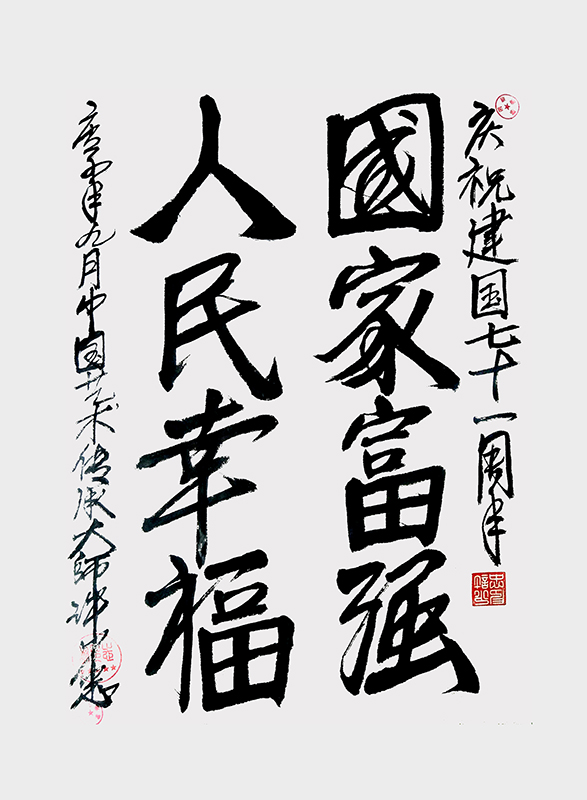 庆祝建国七十一周年
國家富强
人民幸福
庚子年九月中国艺术传承大师许小忠